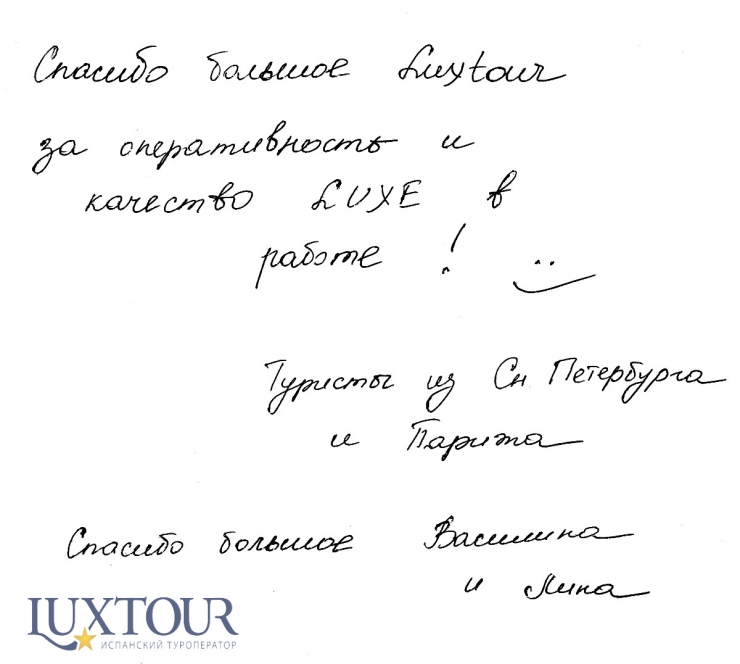 Спасибо большое Luxtour
за оперативность и
качество LUXE в
работе ! ..
Туристы из Сн Петербурга
и Парижа
Спасибо большое Василина
и Лина
LUXTOUR
ИСПАНСКИЙ ТУРОПЕРАТОР